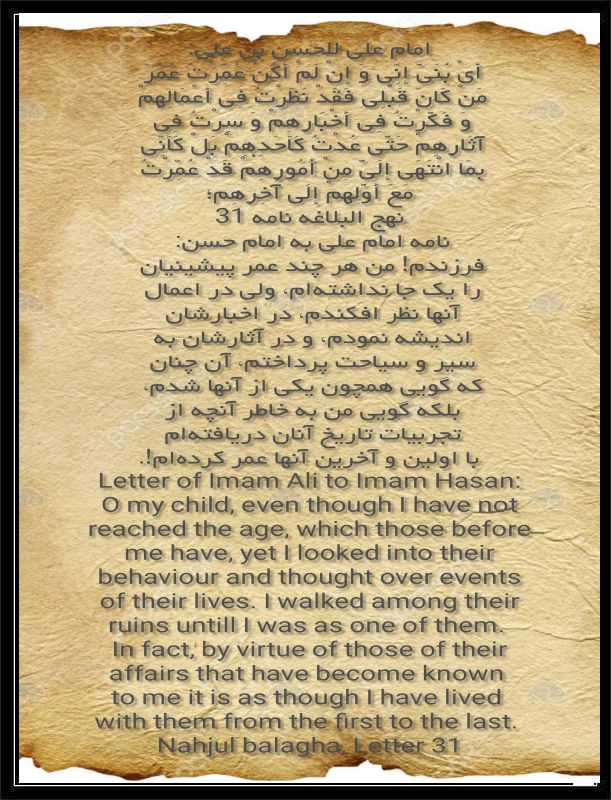 امام علی للحسن بن علی:
أَیْ بُنَیَّ إِنِّی وَ إِنْ لَمْ أَکُنْ عُمِّرْتُ عُمُرَ
مَنْ کَانَ قَبْلِی فَقَدْ نَظَرْتُ فِی أَعْمَالِهِمْ
وَ فَکَّرْتُ فِی أَخْبَارِهِمْ وَ سِرْتُ فِی
آثَارِهِمْ حَتَّی عُدْتُ کَأَحَدِهِمْ بَلْ کَأَنِّی
بِمَا انْتَهَی إِلَیَّ مِنْ أُمُورِهِمْ قَدْ عُمِّرْتُ
مَعَ أَوَّلِهِمْ إِلَی آخِرِهِمْ؛
نهج البلاغه نامه 31
نامه امام علی به امام حسن:
فرزندم! من هر چند عمر پیشینیان
را یک جا نداشته‌ام، ولی در اعمال
آنها نظر افکندم، در اخبارشان
اندیشه نمودم، و در آثارشان به
سیر و سیاحت پرداختم، آن چنان
که گویی همچون یکی از آنها شدم،
بلکه گویی من به خاطر آنچه از
تجربیات تاریخ آنان دریافته‌ام
با اولین و آخرین آنها عمر کرده‌ام!.
Letter of Imam Ali to Imam Hasan:
O my child, even though I have not
reached the age, which those before
me have, yet I looked into their
behaviour and thought over events
of their lives. I walked among their
ruins untill I was as one of them.
In fact, by virtue of those of their
affairs that have become known
to me it is as though I have lived
with them from the first to the last.
Nahjul balagha, Letter 31